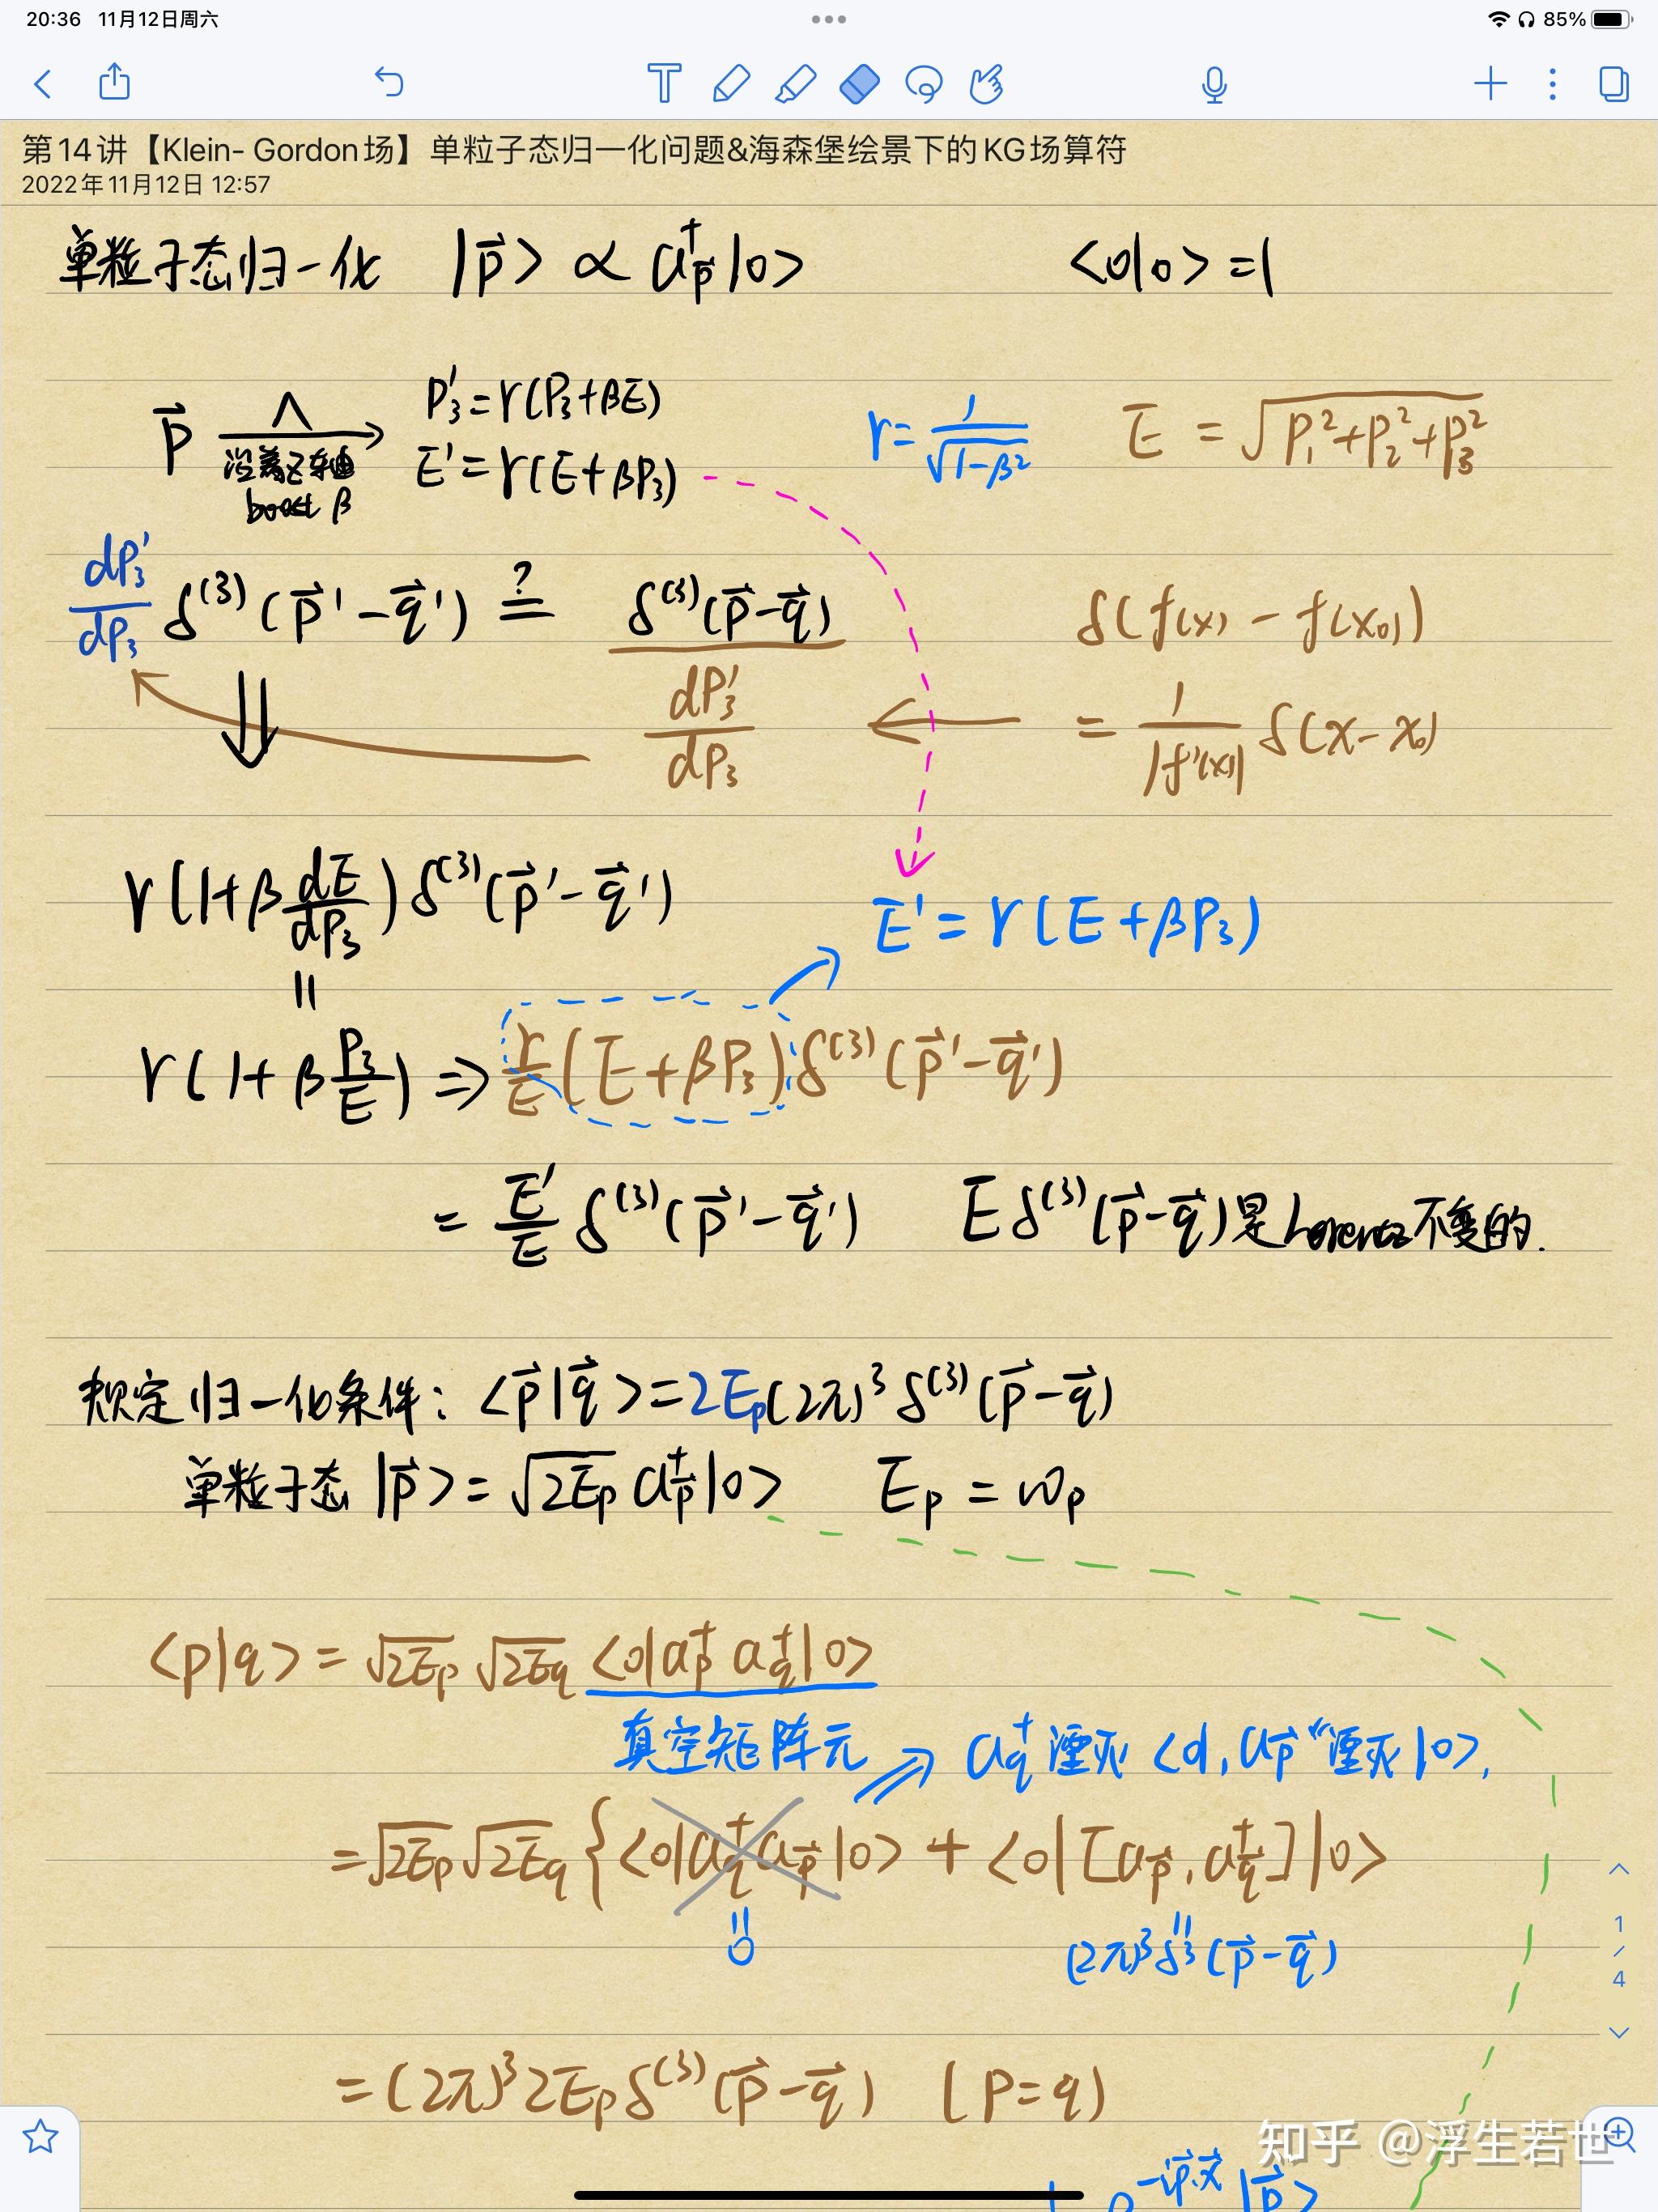 20:36 11月12日周六
85%
第14讲【Klein- Gordon场】单粒子态归一化问题&海森堡绘景下的KG场算符
2022年11月12日 12:57
单粒子态归一化 |p⃗> ∝ a†_p⃗ |0> <0|0> = 1
p⃗ →Λ P₃' = γ(P₃+βE)
沿着Z轴 boost β E' = γ(E+βP₃)
γ = 1/√(1-β²) E = √(P₁²+P₂²+P₃²)
dP₃'/dP₃ δ⁽³⁾(p⃗'-q⃗') ?= δ⁽³⁾(p⃗-q⃗) δ(f(x) - f(x₀))
dP₃'/dP₃ ← = 1/|f'(x)| δ(x-x₀)
γ(1+β dE/dP₃) δ⁽³⁾(p⃗'-q⃗') E' = γ(E+βP₃)
=
γ(1+β P₃/E) ⇒ γ/E (E+βP₃) δ⁽³⁾(p⃗'-q⃗')
= E'/E δ⁽³⁾(p⃗'-q⃗') E δ⁽³⁾(p⃗-q⃗)是Lorentz不变的.
规定归一化条件: <p⃗|q⃗> = 2E_p(2π)³ δ⁽³⁾(p⃗-q⃗)
单粒子态 |p⃗> = √2E_p a†_p⃗ |0> E_p = ω_p
<p|q> = √2E_p √2E_q <0|a†_p⃗ a†_q⃗|0>
真空矩阵元 ⇒ a†_q 湮灭 <0|, a_p⃗ “湮灭 |0>,
= √2E_p √2E_q { <0|a†_q a_p⃗|0> + <0| [a_p⃗, a†_q⃗] |0>
= 0 = (2π)³δ³(p⃗-q⃗)
1/4
= (2π)³ 2E_p δ⁽³⁾(p⃗-q⃗) (p=q)
知乎 @浮生若世
e^{-ip⃗·x⃗} |p⃗>